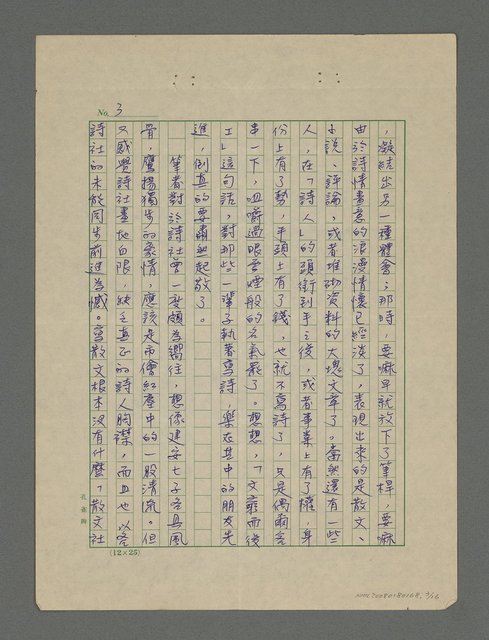 No. 3
，凝結出另一種體會；那時，要嘛早就放下了筆桿，要嘛
由於詩情畫意的浪漫情懷已經淡了，表現出來的是散文、
小說、評論，或者堆砌資料的大塊文章了。當然還有一些
人，在「詩人」的頭銜到手之後，或者事業上有了權，身
份上有了勢，手頭上有了錢，也就不寫詩了，只是偶爾客
串一下，咀嚼過眼雲煙般的名氣罷了。想想，「文窮而後
工」這句話，對那些一輩子執著寫詩，樂在其中的朋友先
進，倒真的要肅然起敬了。
筆者對於詩社曾一度頗為嚮往，想像建安七子名具風
骨，鷹揚獨步的豪情，應該是市儈紅塵中的一股清流。但
又感覺詩社畫地自限，缺乏真正的詩人胸襟，而且也以各
詩社的未能同步前進為憾。寫散文根本沒有什麼「散文社
孔雀牌
(12×25)
NMTL20080180168, 3/16